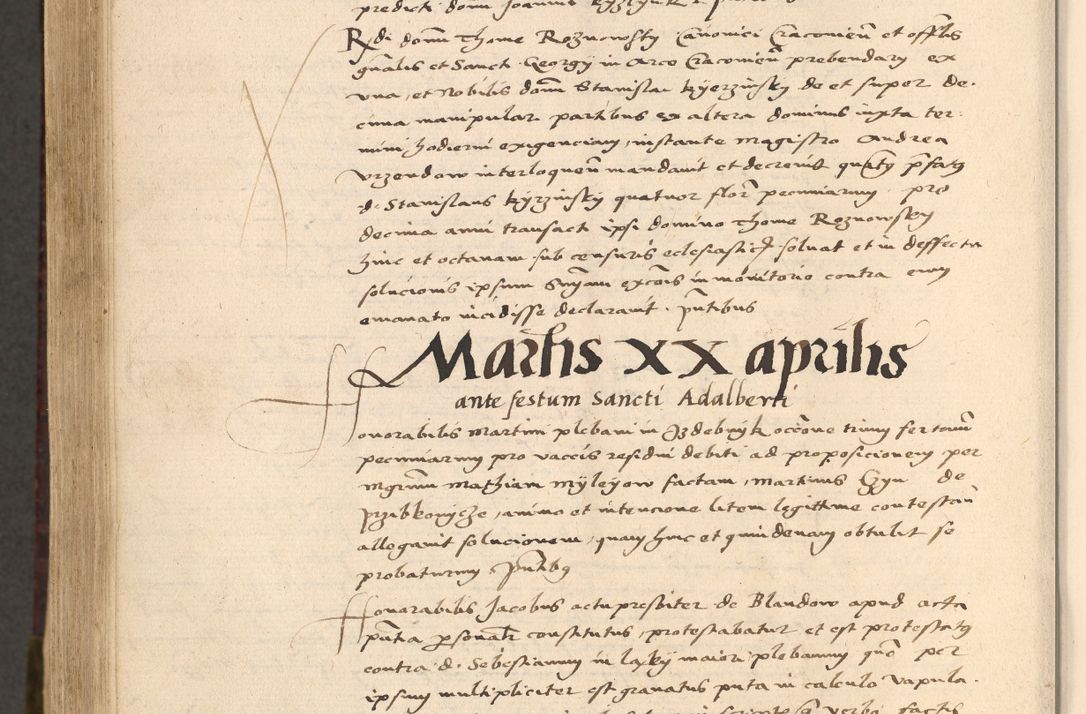 predicti domini Joannis
Rdi domi Thome Roznowsky Canonici Cracovien et offlis
gnalis et Sancti Georgy in Arce Cracovien prebendary ex
una, et Nobilis domi Stanislai kyerzinsky de et super de-
cima manipulari partibus ex altera dominus iuxta ter-
mini hodierni exigenciam, instante magistro Andrea
Vrzendow interloquen mandavit et decrevit quatus pfatus
d. Stanislaus kyrzinsky quatuor flor pecuniarum pro
decima anni transacti ipsi domino Thome Roznowsky
hinc et octavam sub censuris eclesiasticis solvat et in deffectu
solucionis ipsum Snyam excois in monitorio contra eum
emanato incidisse declaravit. pntibus
Martis XX aprilis
ante festum Sancti Adalberti
Honorabilis Martini plebani in Jzdebnyk occone trium fertonum
pecuniarum pro vaccis residui debiti ad proposicionem per
mgrum Mathiam Myleyow factam, Martinus de
Przibkovycze, animo et intencione litem legittime contestan
allegavit solucionem, quam hinc et quindenam obtulit se
probaturum, pntibus
Honorabilis Jacobus actu presbiter de Blandow apud acta
pntia psonalr constitutus, protestabatur et est protestatus
contra d. Sebestianum in laky maiori plebanum quo per
ipsum multipliciter est gravatus puta in calculo vapula-
verba factis